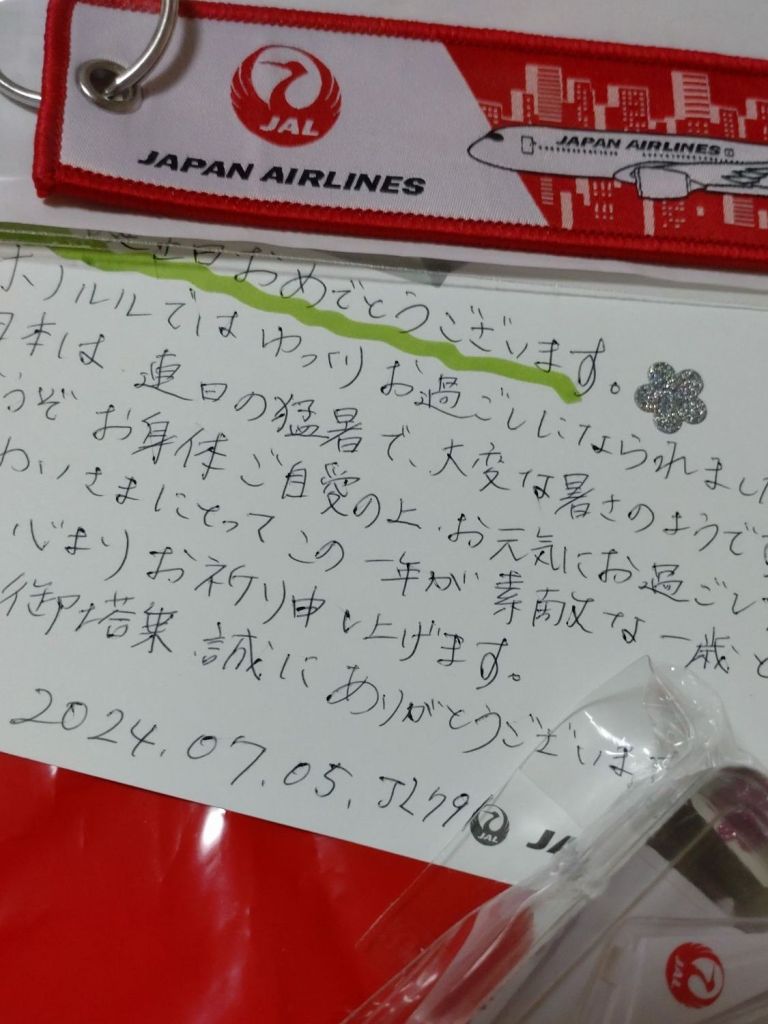 JAL
JAPAN AIRLINES
JAPAN AIRLINES
日おめでとうございます。
ホノルルではゆっくりお過ごしになられまし
日本は連日の猛暑で、大変な暑さのようで
うぞお身体ご自愛の上、お元気にお過ごし
わいさまにとってこの一年が素敵な一歳と
心よりお祈り申し上げます。
御塔乗誠にありがとうございま
2024.07.05. JL79
JAL
JAL